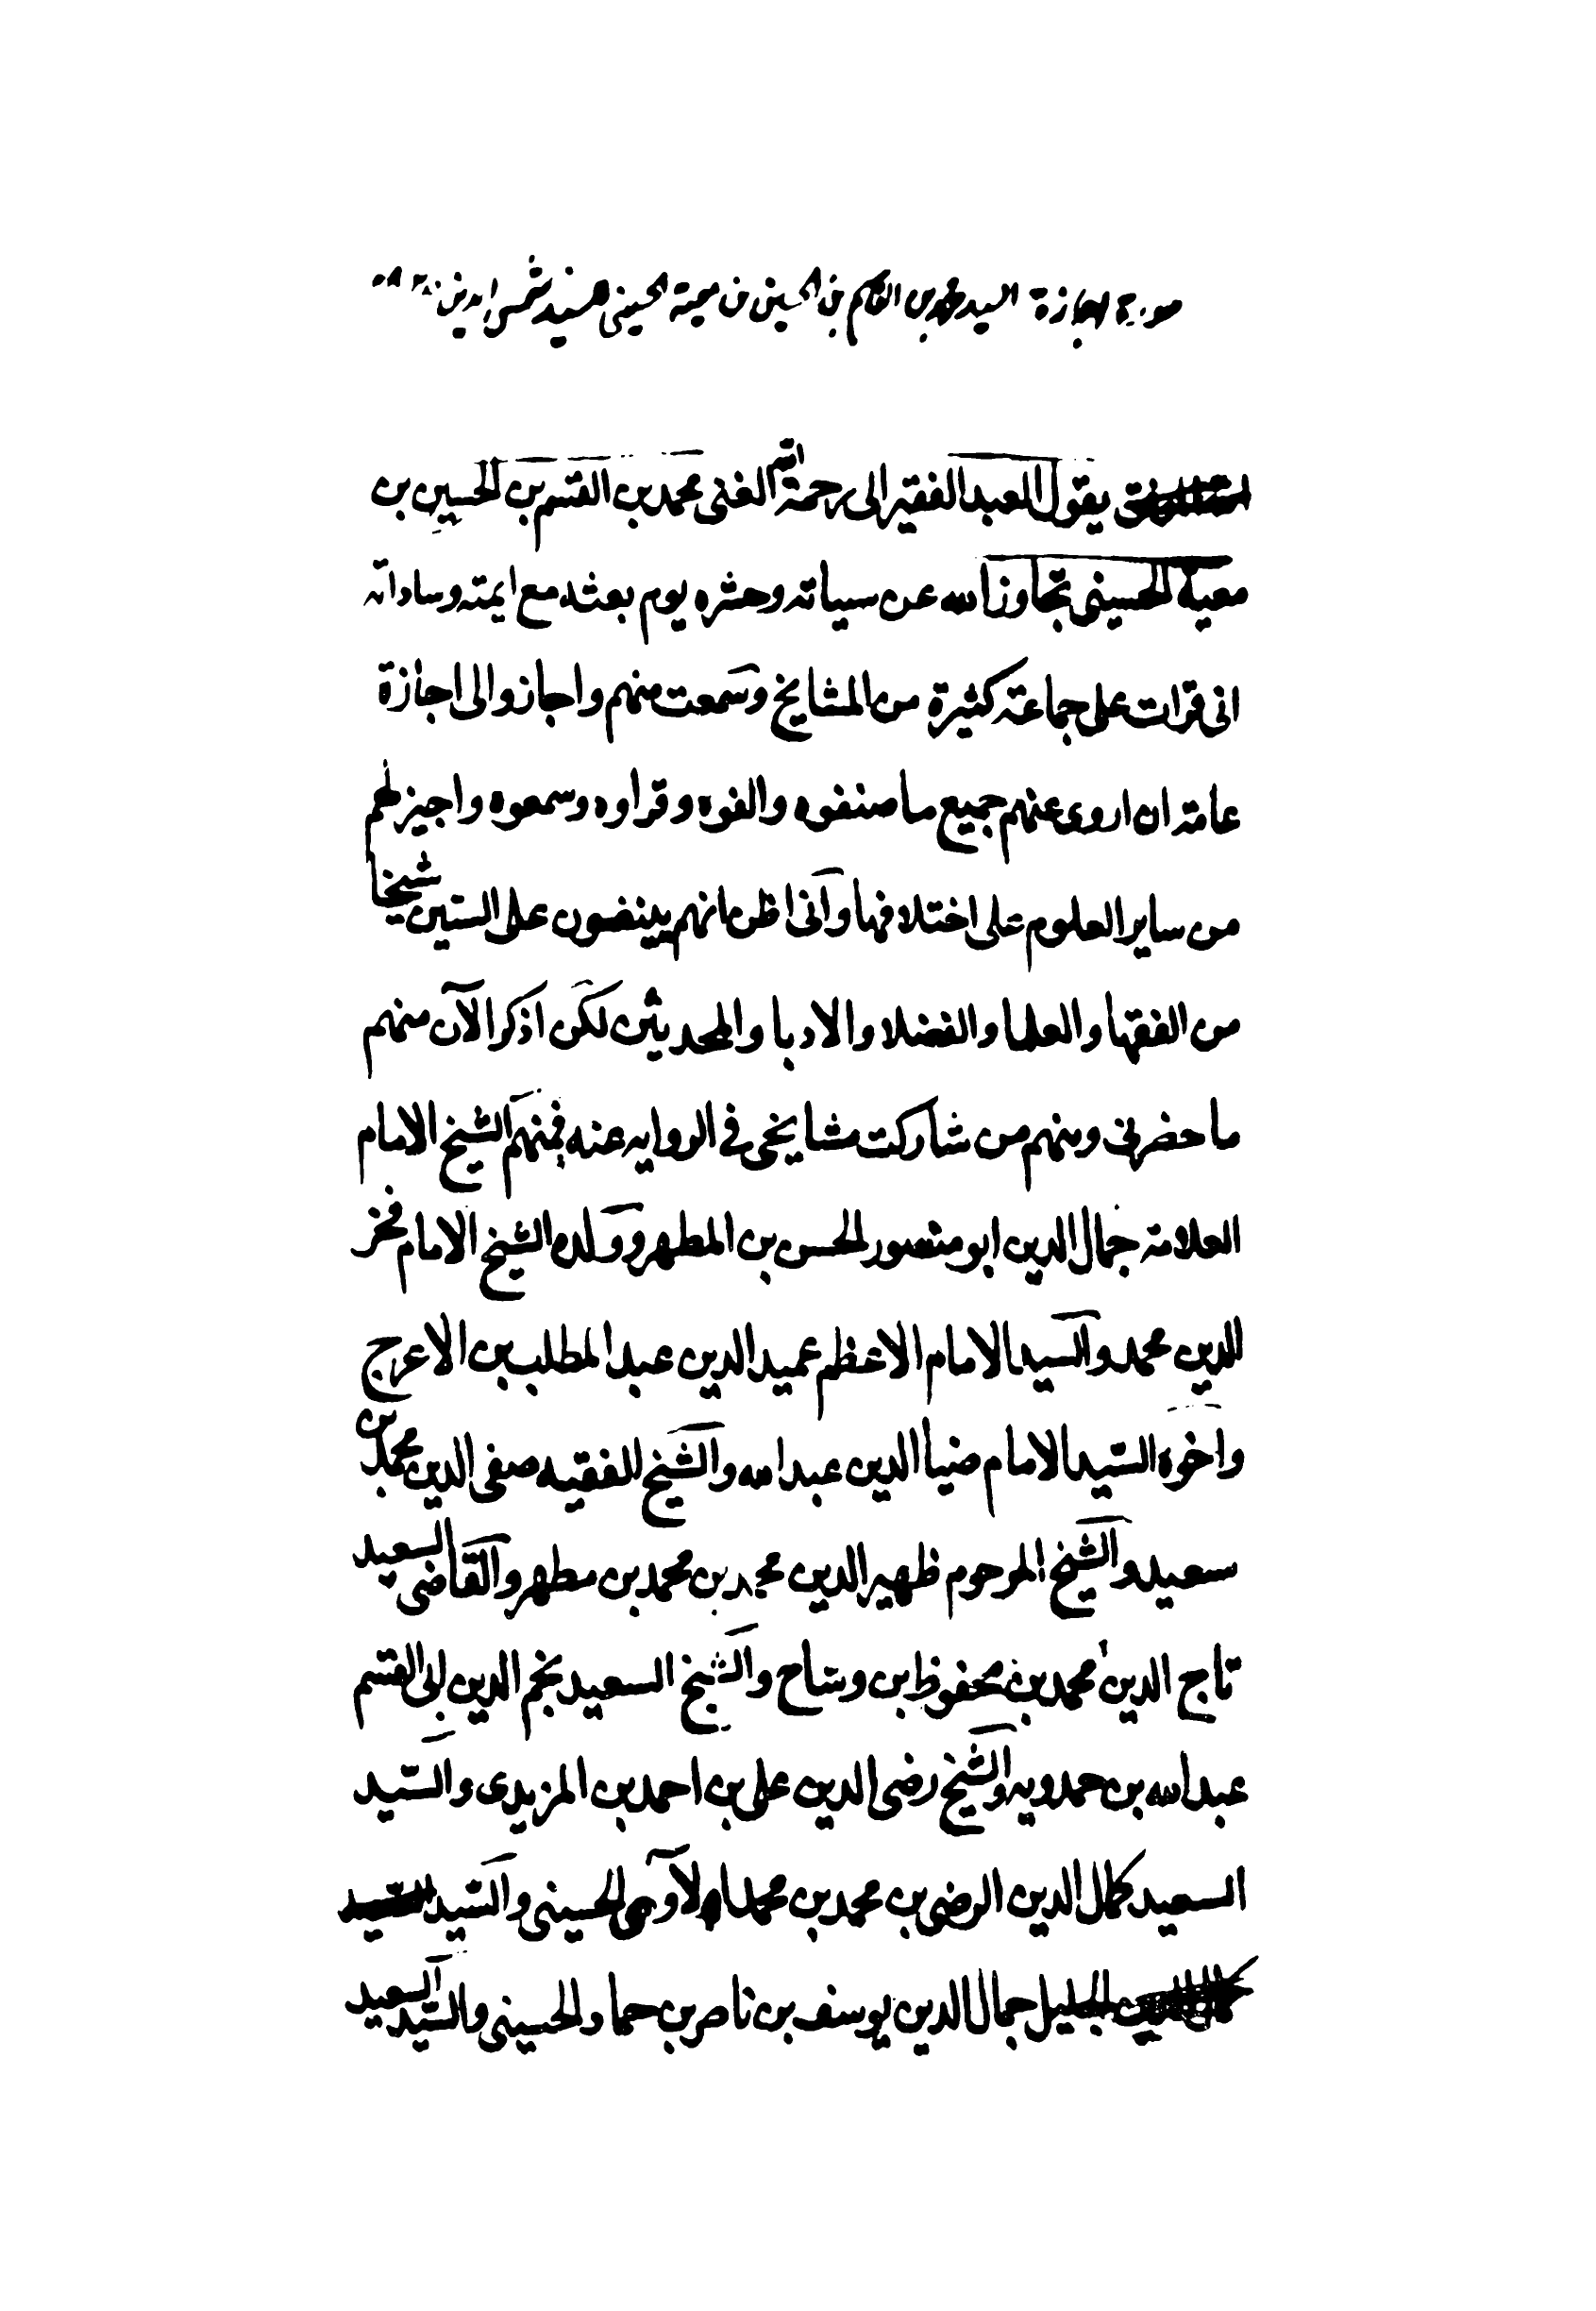 صورة اجازة السيد محمد بن القاسم بن الحسين بن معية الحسيني للسيد شمس الدين
يقول العبد الفقير الى رحمة الله الغنى محمد بن القسم بن الحسين بن
معية الحسيني تجاوز الله عن سياته وحشره يوم بعثه مع ايمته وساداته
انى قرات على جماعة كثيرة من المشايخ وسمعت منهم واجازوا لى اجازة
عامة ان اروى عنهم جميع ما صنفوه والفوه وقراوه وسمعوه واجيز لهم
من ساير العلوم على اختلافها وانى اظن انهم ينيفون على الستين شيخا
من الفقها والعلما والفضلا والادبا والمحدثين لكن اذكر الآن منهم
ما حضرنى ومنهم من شاركت مشايخى فى الرواية عنه فمنهم الشيخ الامام
العلامة جمال الدين ابو منصور الحسن بن المطهر وولده الشيخ الامام فخر
الدين محمد والسيد الامام الاعظم عميد الدين عبد المطلب بن الاعرج
واخوه السيد الامام ضيا الدين عبد الله والشيخ الفقيه صفى الدين محمد بن
سعيد والشيخ المرحوم ظهير الدين محمد بن محمد بن مطهر والقاضى السعيد
تاج الدين محمد بن محفوظ بن وشاح والشيخ السعيد نجم الدين ابى القسم
عبد الله بن حمدويه والشيخ رضى الدين على بن احمد بن المزيدى والسيد
السعيد كمال الدين الرضى بن محمد بن محمد الآوى الحسينى والسيد
الجليل جمال الدين يوسف بن ناصر بن حماد الحسينى والسيد السعيد